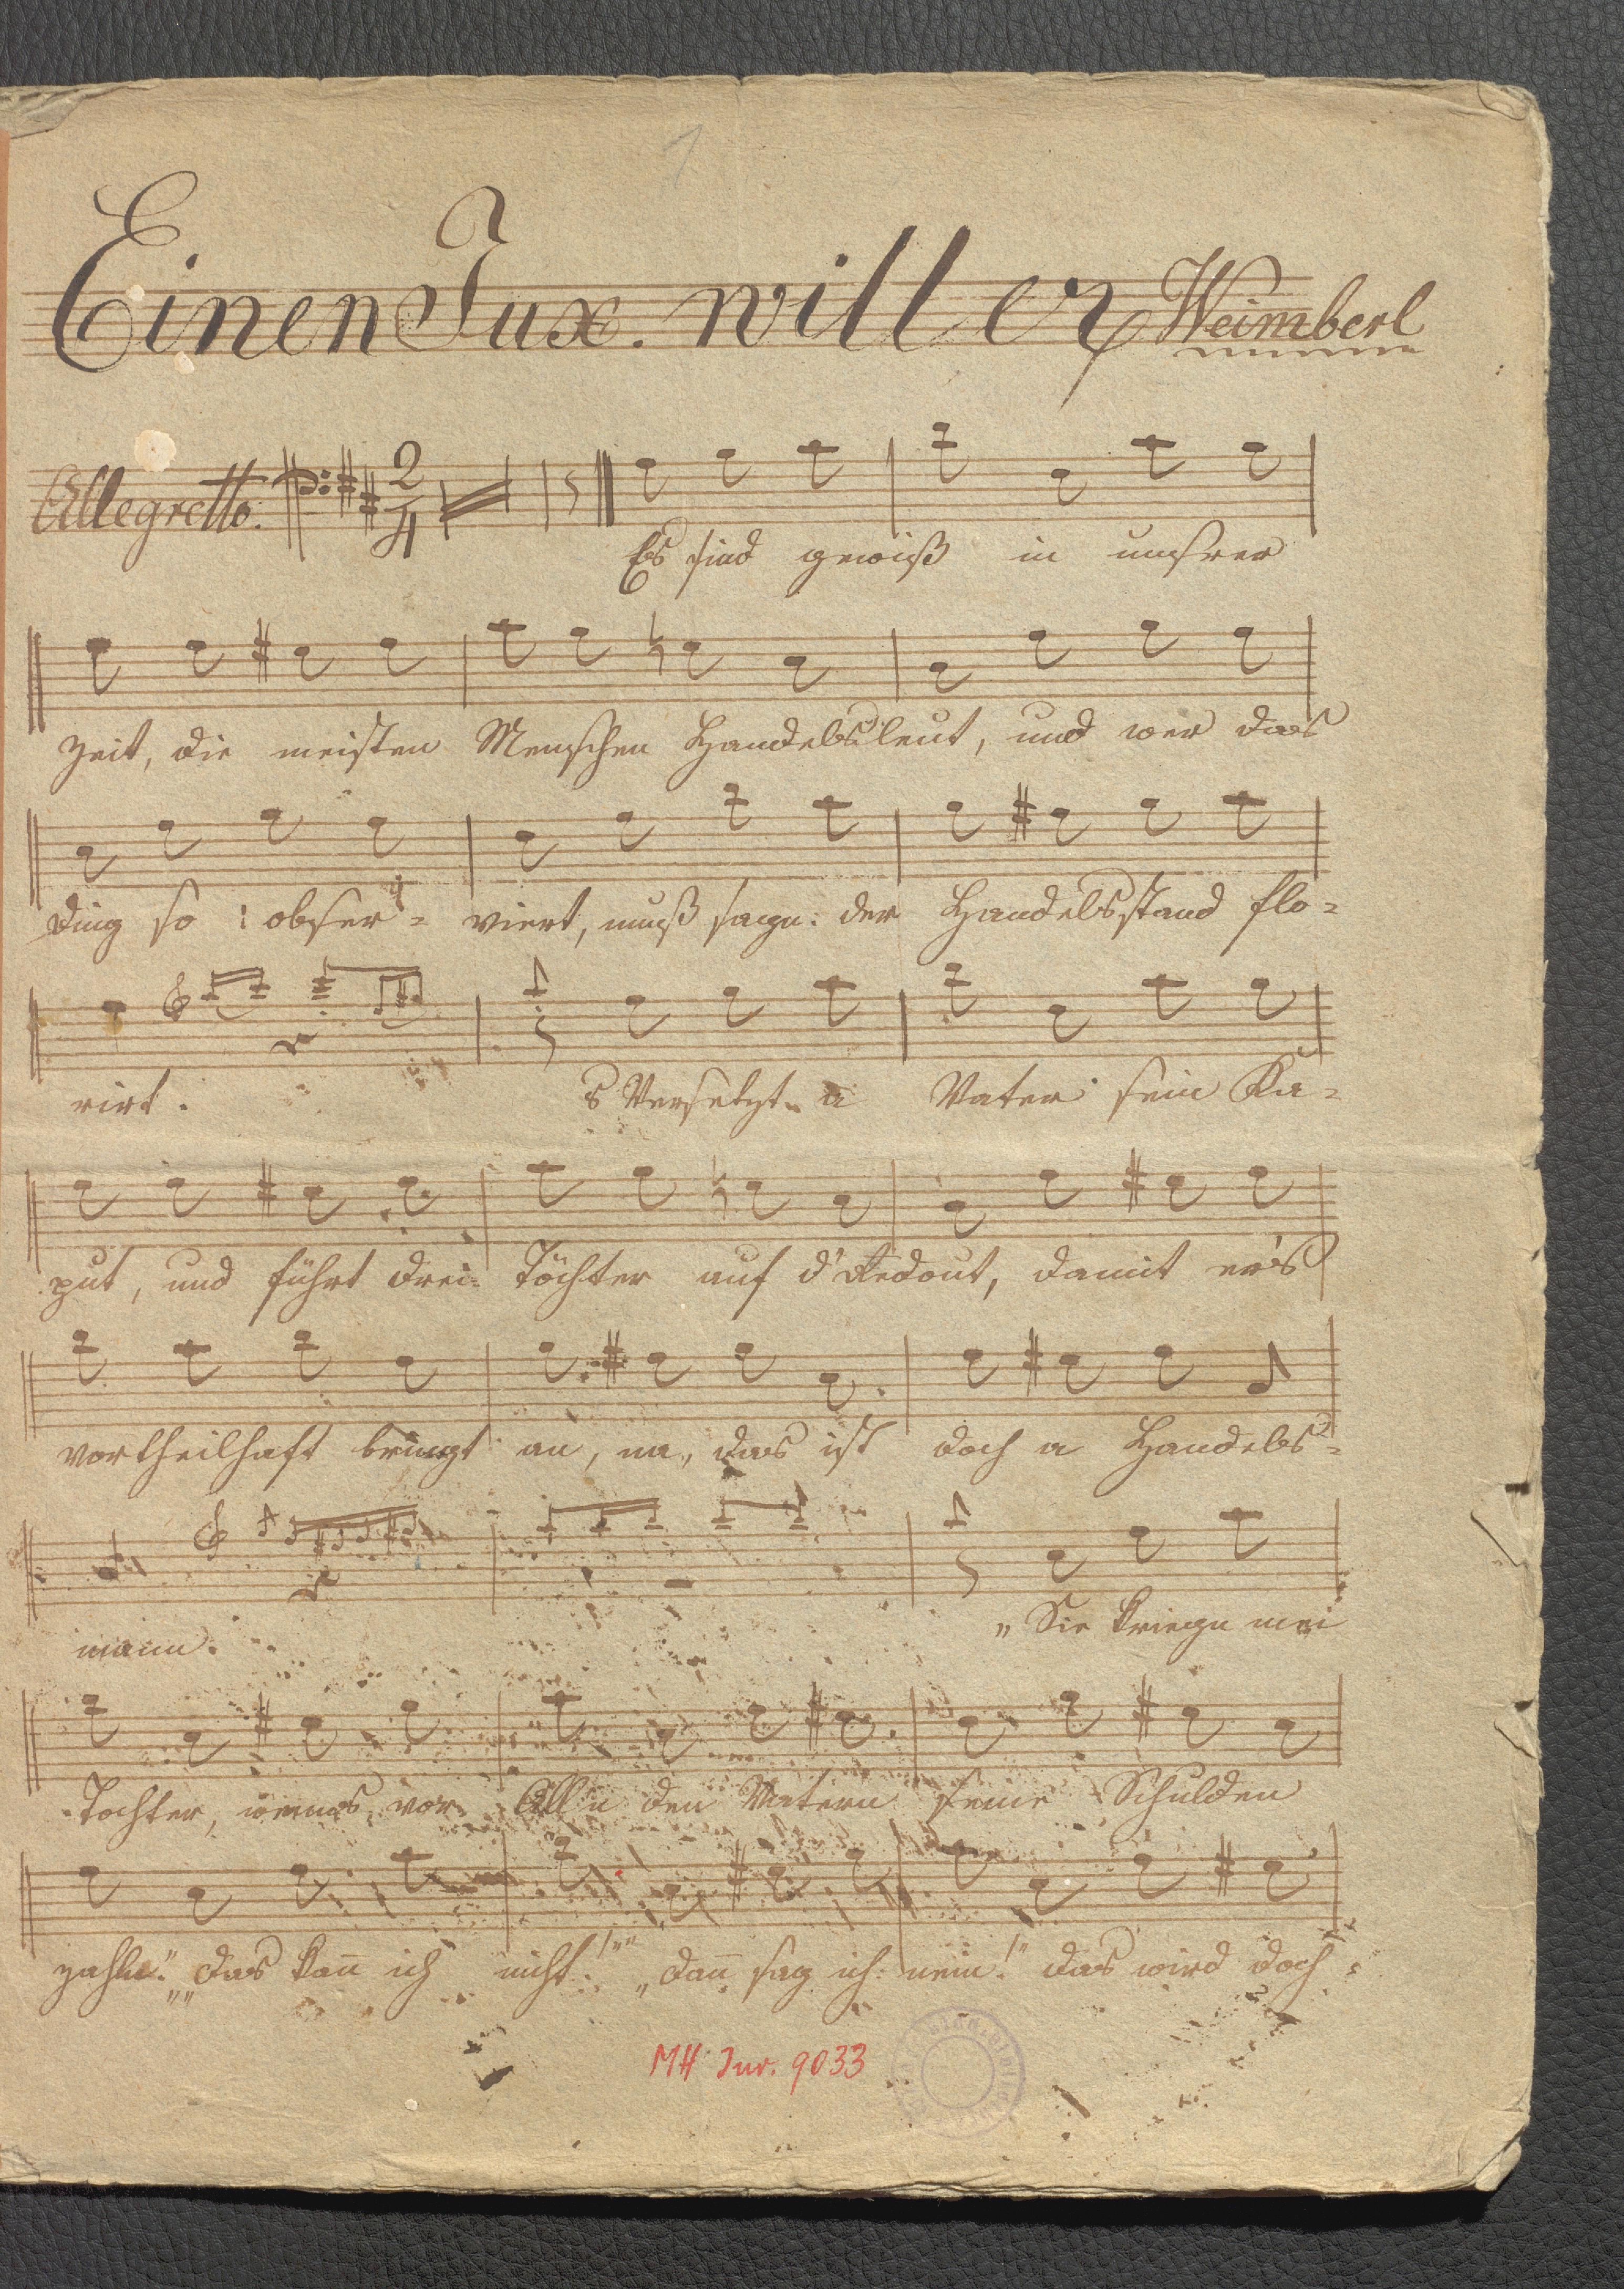 1
Einen Jux. will er Weimberl
Allegretto. 2 4
Es sind gewiß in unsrer
Zeit, die meisten Menschen Handelsleut, und wer das
Ding so : obser = viert, muß sagn: der Handelsstand flo =
rirt. s Versetzt a Vater sein Ka =
put, und führt drei Töchter auf d'Redout, damit er's
vortheilhaft bringt an, na, das ist doch a Handels =
mann. „Sie kriegn mei
Tochter, wenns vor Alln den Vatern seine Schulden
zahln." „„Das kan̄ ich nicht!"" „dan̄ sag ich: nein!" das wird doch =
MH Inv. 9033